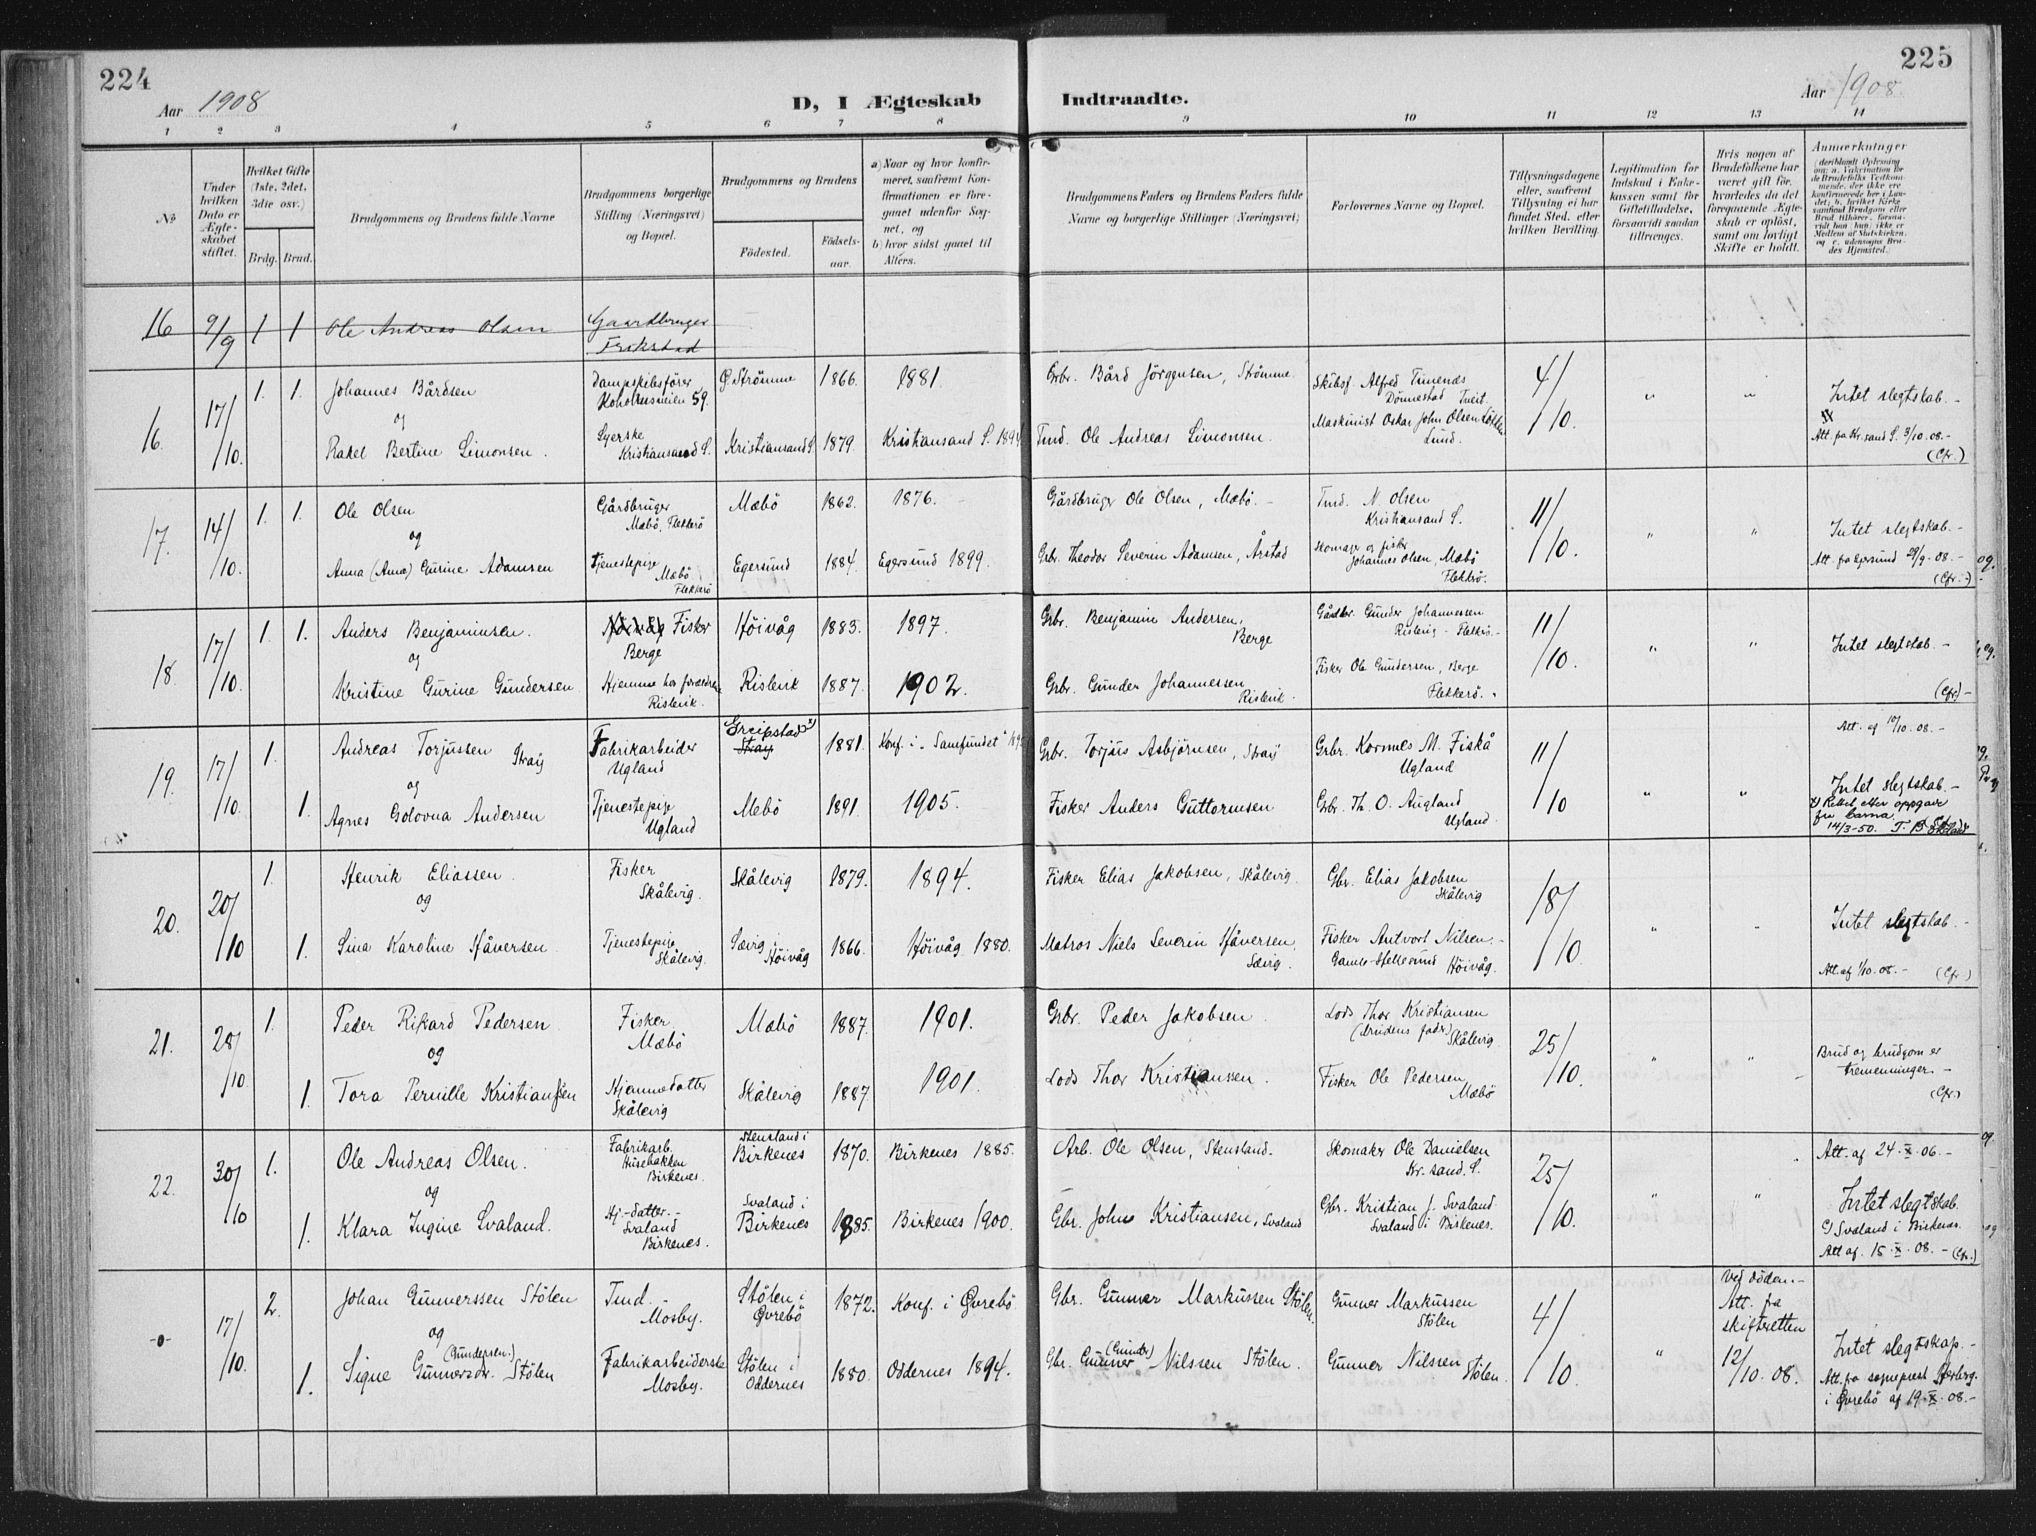 224
Aar 1908
D, I Ægteskab
Indtraadte.
225
Aar 1908.
1 2 3 4 5 6 7 8 9 10 11 12 13 14
№
Under hvilken Dato er Ægteskabet stiftet.
Hvilket Gifte (1ste, 2det, 3die osv.)
Brdg. Brud.
Brudgommens og Brudens fulde Navne
Brudgommens borgerlige Stilling (Næringsvei) og Bopæl.
Brudgommens og Brudens
Fødested. Fødselsaar.
a) Naar og hvor konfirmeret, saafremt Konfirmationen er foregaaet udenfor Sognet, og
b) hvor sidst gaaet til Alters.
Brudgommens Faders og Brudens Faders fulde Navne og borgerlige Stillinger (Næringsvei)
Forlovernes Navne og Bopæl.
Tillysningsdagene eller, saafremt Tillysning ei har fundet Sted, efter hvilken Bevilling.
Legitimation for Indskud i Enkekassen samt for Giftetilladelse, forsaavidt saadan tiltrænges.
Hvis nogen af Brudefolkene har været gift før, hvorledes da det foregaaende Ægteskab er opløst, samt om lovligt Skifte er holdt.
Anmerkninger
16 9/9 1 1 Ole Andreas Olsen Gaardbruger
16. 17/10. 1. 1. Johannes Bårdsen Dampskibsfører 59. O. Strömme 1866. 1881. Grbr. Bård Jörgensen, Strömme Skibsf. Alfred Dönnestad Tveit. 4/10. " " Intet slegtskab. -
og
Rakel Bertine Simonsen. Syerske Kristiansand S. Kristiansand S. 1879. Kristiansand S. 1894. Tmd. Ole Andreas Simonsen. Maskinist Oskar John Olsen Lund. Att. fra Kr.sand S. 3/10. 08. -
(Cfr.)
17. 14/10. 1. 1. Ole Olsen Gårdbruger Mæbö, Flekkerö Mæbö 1862. 1876. Gårdbruger Ole Olsen, Mæbö. - Tmd. N. Olsen Kristiansand S. 11/10. " " Intet slegtskab. -
og
Anna (Anne) Gurine Adamsen Tjenestepige Mæbö Flekkerö Egersund 1884. Egersund 1899. Grbr. Theodor Severin Adamsen, Årstad Skomager og fisker Johannes Olsen, Mæbö Flekkerö. Att. fra Egersund 29/9 - 08. -
(Cfr. -)
18. 17/10. 1. 1. Anders Benjaminsen. Fisker Berge Höivåg 1883. 1897. Grbr. Benjamin Andersen, Berge Gårdbr. Gunder Johannessen 11/10. " " Intet slegtskab. -
og
Kristine Gurine Gundersen Hjemme hos forældre Rislevik. Rislevik 1887. 1902. Grbr. Gunder Johannessen Rislevik. Fisker Ole Gundersen, Berge Flekkerö. (Cfr.) -
19. 17/10. 1. Andreas Torjussen Straij Fabrikarbeider Ugland Greipstad x) Straij 1881. Konf. i „Samfundet" Grbr. Torjus Asbjörnsen, Straij Grbr. Kornnes M. Fiskå Ugland 11/10 " " Att. af 10/10. 08. -
og
1. Agnes Golovna Andersen Tjenestepige Ugland Mebö 1891. 1905. Fisker Anders Guttormsen Grbr. Th. O. Augland Ugland. Intet slegtskab. -
x) Rettet efter oppgave fra barna. 14/3-50.
20. 20/10 1. Henrik Eliassen. Fisker Skålevig. Skålevig 1879. 1894. Fisker Elias Jakobsen, Skålevig. Gbr. Elias Jakobsen Skålevig 18/10. " " Intet slegtskab. -
og
1. Sina Karoline Håversen. Tjenestepige Skålevig. Sævig, Höivåg 1866. Höivåg 1880. Matros Niels Severin Håversen, Sævig. Fisker Antvort Nilsen. - Gamle-Hellesund Höivåg. Att. af 1/10. 08. - (Cfr.)
21. 28/10. 1. Peder Rikard Pedersen Fisker Mæbö Mæbö 1887. 1901. Grbr. Peder Jakobsen. Lods Thor Kristiansen (brudens fader) Skålevig 25/10. " " Brud og brudgom er tremenninger. -
og
1. Tora Pernille Kristiansen Hjemmedatter Skålevig Skålevig 1887 1901. Lods Thor Kristianssen. Fisker Ole Pedersen Mæbö (Cfr.)
22. 30/10 1. Ole Andreas Olsen. Fabrikarb. Husebakken Birkenes. Stensland i Birkenes 1870. Birkenes 1885. Arb. Ole Olsen, Stensland. Skomaker Ole Danielsen Kr.sand. S. 25/10. " " Att. af 24. X. 06. -
og
1. Klara Ingine Svaland. Hj-datter. - Svaland Birkenes. Svaland i Birkenes 1885. Birkenes 1900. Gbr. John Kristiansen, Svaland Gbr. Kristian J. Svaland Svaland i Birkenes. Intet slegtskab.
c/ Svaland i Birkenes.
Att af. 15. X. 08. - (Cfr.)
-0- 17/10. 2. Johan Gunnerssen Stölen Tmd. Mosby. Stölen i Øvrebö 1872. Konf. i Øvrebö Gbr. Gunner Markussen Stölen. Gunner Markussen Stölen 4/10. " Att. fra skifteretten 12/10. 08.
og
1. Signe Gunnersdr. (Gundersen.) Stölen Fabrikarbeiderske Mosby. Stölen i Oddernes 1880. Oddernes 1894. Gbr. Gunner (Gunder) Nilssen Stölen. Gunner Nilssen Stölen. Intet slegtskap. -
Att. fra sogneprest i Øvrebö af 19. X. 08. -